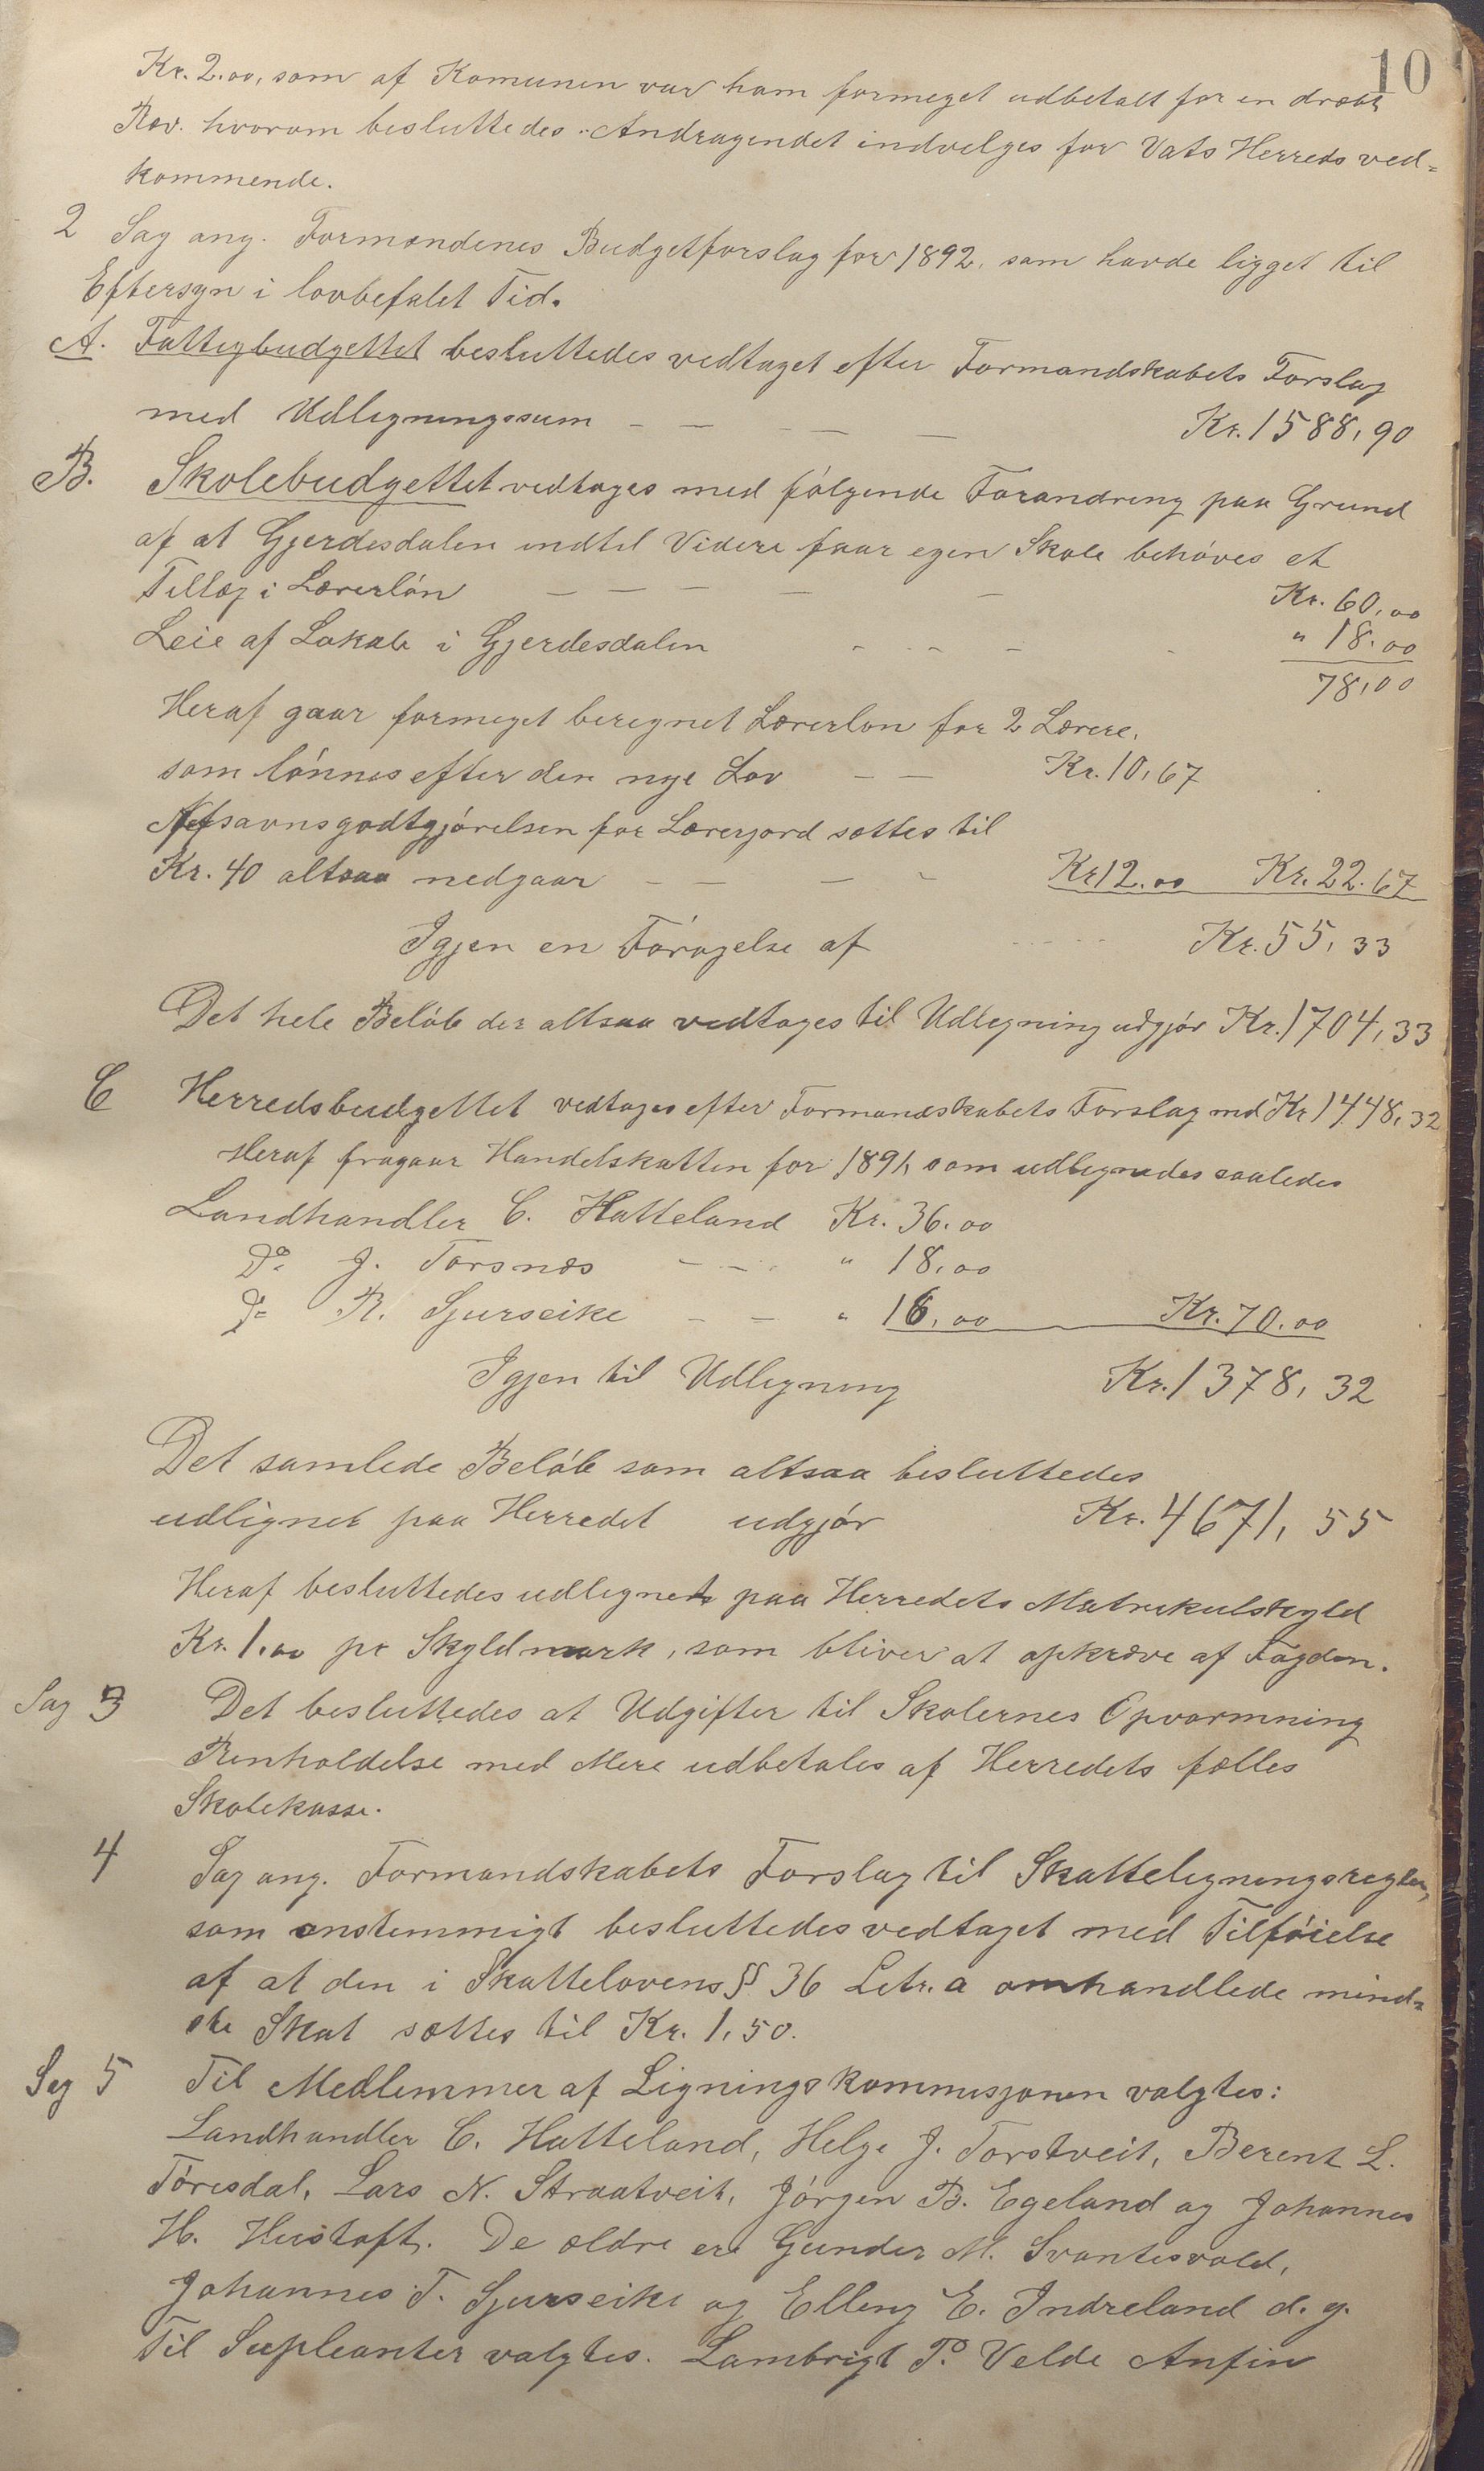 10
Kr. 2.00, som af Komunen var ham formeget udbetalt for en dræbt
Ræv. hvorom besluttedes: Andragendet indvelges for Vats Herreds ved=
kommende.
2 Sag ang. Formændenes Budgetforslag for 1892, som havde ligget til
Eftersyn i lovbefalet Tid.
A. Fattigbudgettet besluttedes vedtaget efter Formandskabets Forslag
med Udligningssum — — — — Kr. 1588,90
B. Skolebudgettet vedtages med følgende Forandring paa Grund
af at Gjerdesdalen indtil Videre faar egen Skole behøves et
Tillæg i Lærerløn — — — — — Kr. 60,00
Leie af Lokale i Gjerdesdalen - - - - - " 18.00
78,00
Heraf gaar formeget beregnet Lærerløn for 2 Lærere,
som lønnes efter den nye Lov — — Kr. 10,67
Afsavnsgodtgjørelsen for Lærerjord sættes til
Kr. 40 altsaa nedgaar — — — - Kr 12.00 Kr. 22.67
Igjen en Forøgelse af Kr. 55,33
Det hele Beløb der altsaa vedtages til Udligning udgjør Kr. 1704,33
C Herredsbudgettet vedtages efter Formandskabets Forslag md Kr 1448,32
Heraf fragaar Handelskatten for 1891, som udlignedes saaledes
Landhandler C. Hatteland Kr. 36.00
Do J. Torsnæs - - - " 18,00
Do R. Sjurseike - - " 16,00 Kr. 70.00
Igjen til Udligning Kr. 1378,32
Det samlede Beløb som altsaa besluttedes
udlignet paa Herredet udgjør Kr. 4671,55
Heraf besluttedes udlignet paa Herredets Matrikulskyld
Kr. 1.00 pr Skyldmark, som bliver at opkræve af Fogden.
Sag 3 Det besluttedes at Udgifter til Skolernes Opvarmning
Renholdelse med Mere udbetales af Herredets fælles
Skolekasse.
4 Sag ang. Formandskabets Forslag til Skatteligningsregler,
som enstemmigt besluttedes vedtaget med Tilføielse
af at den i Skattelovens §§ 36 Litr. a omhandlede mind=
ste Skat sættes til Kr. 1,50.
Sag 5 Til Medlemmer af Ligningskommisjonen valgtes:
Landhandler C. Hatteland, Helge J. Torstveit, Berent L.
Toresdal, Lars N. Straatveit, Jørgen B. Egeland og Johannes
H. Hustoft. De ældre er Gunder M. Svantesvold,
Johannes T. Sjurseike og Elling E. Indreland d. y.
Til Supleanter valgtes. Lambrigt P. Velde Anfin